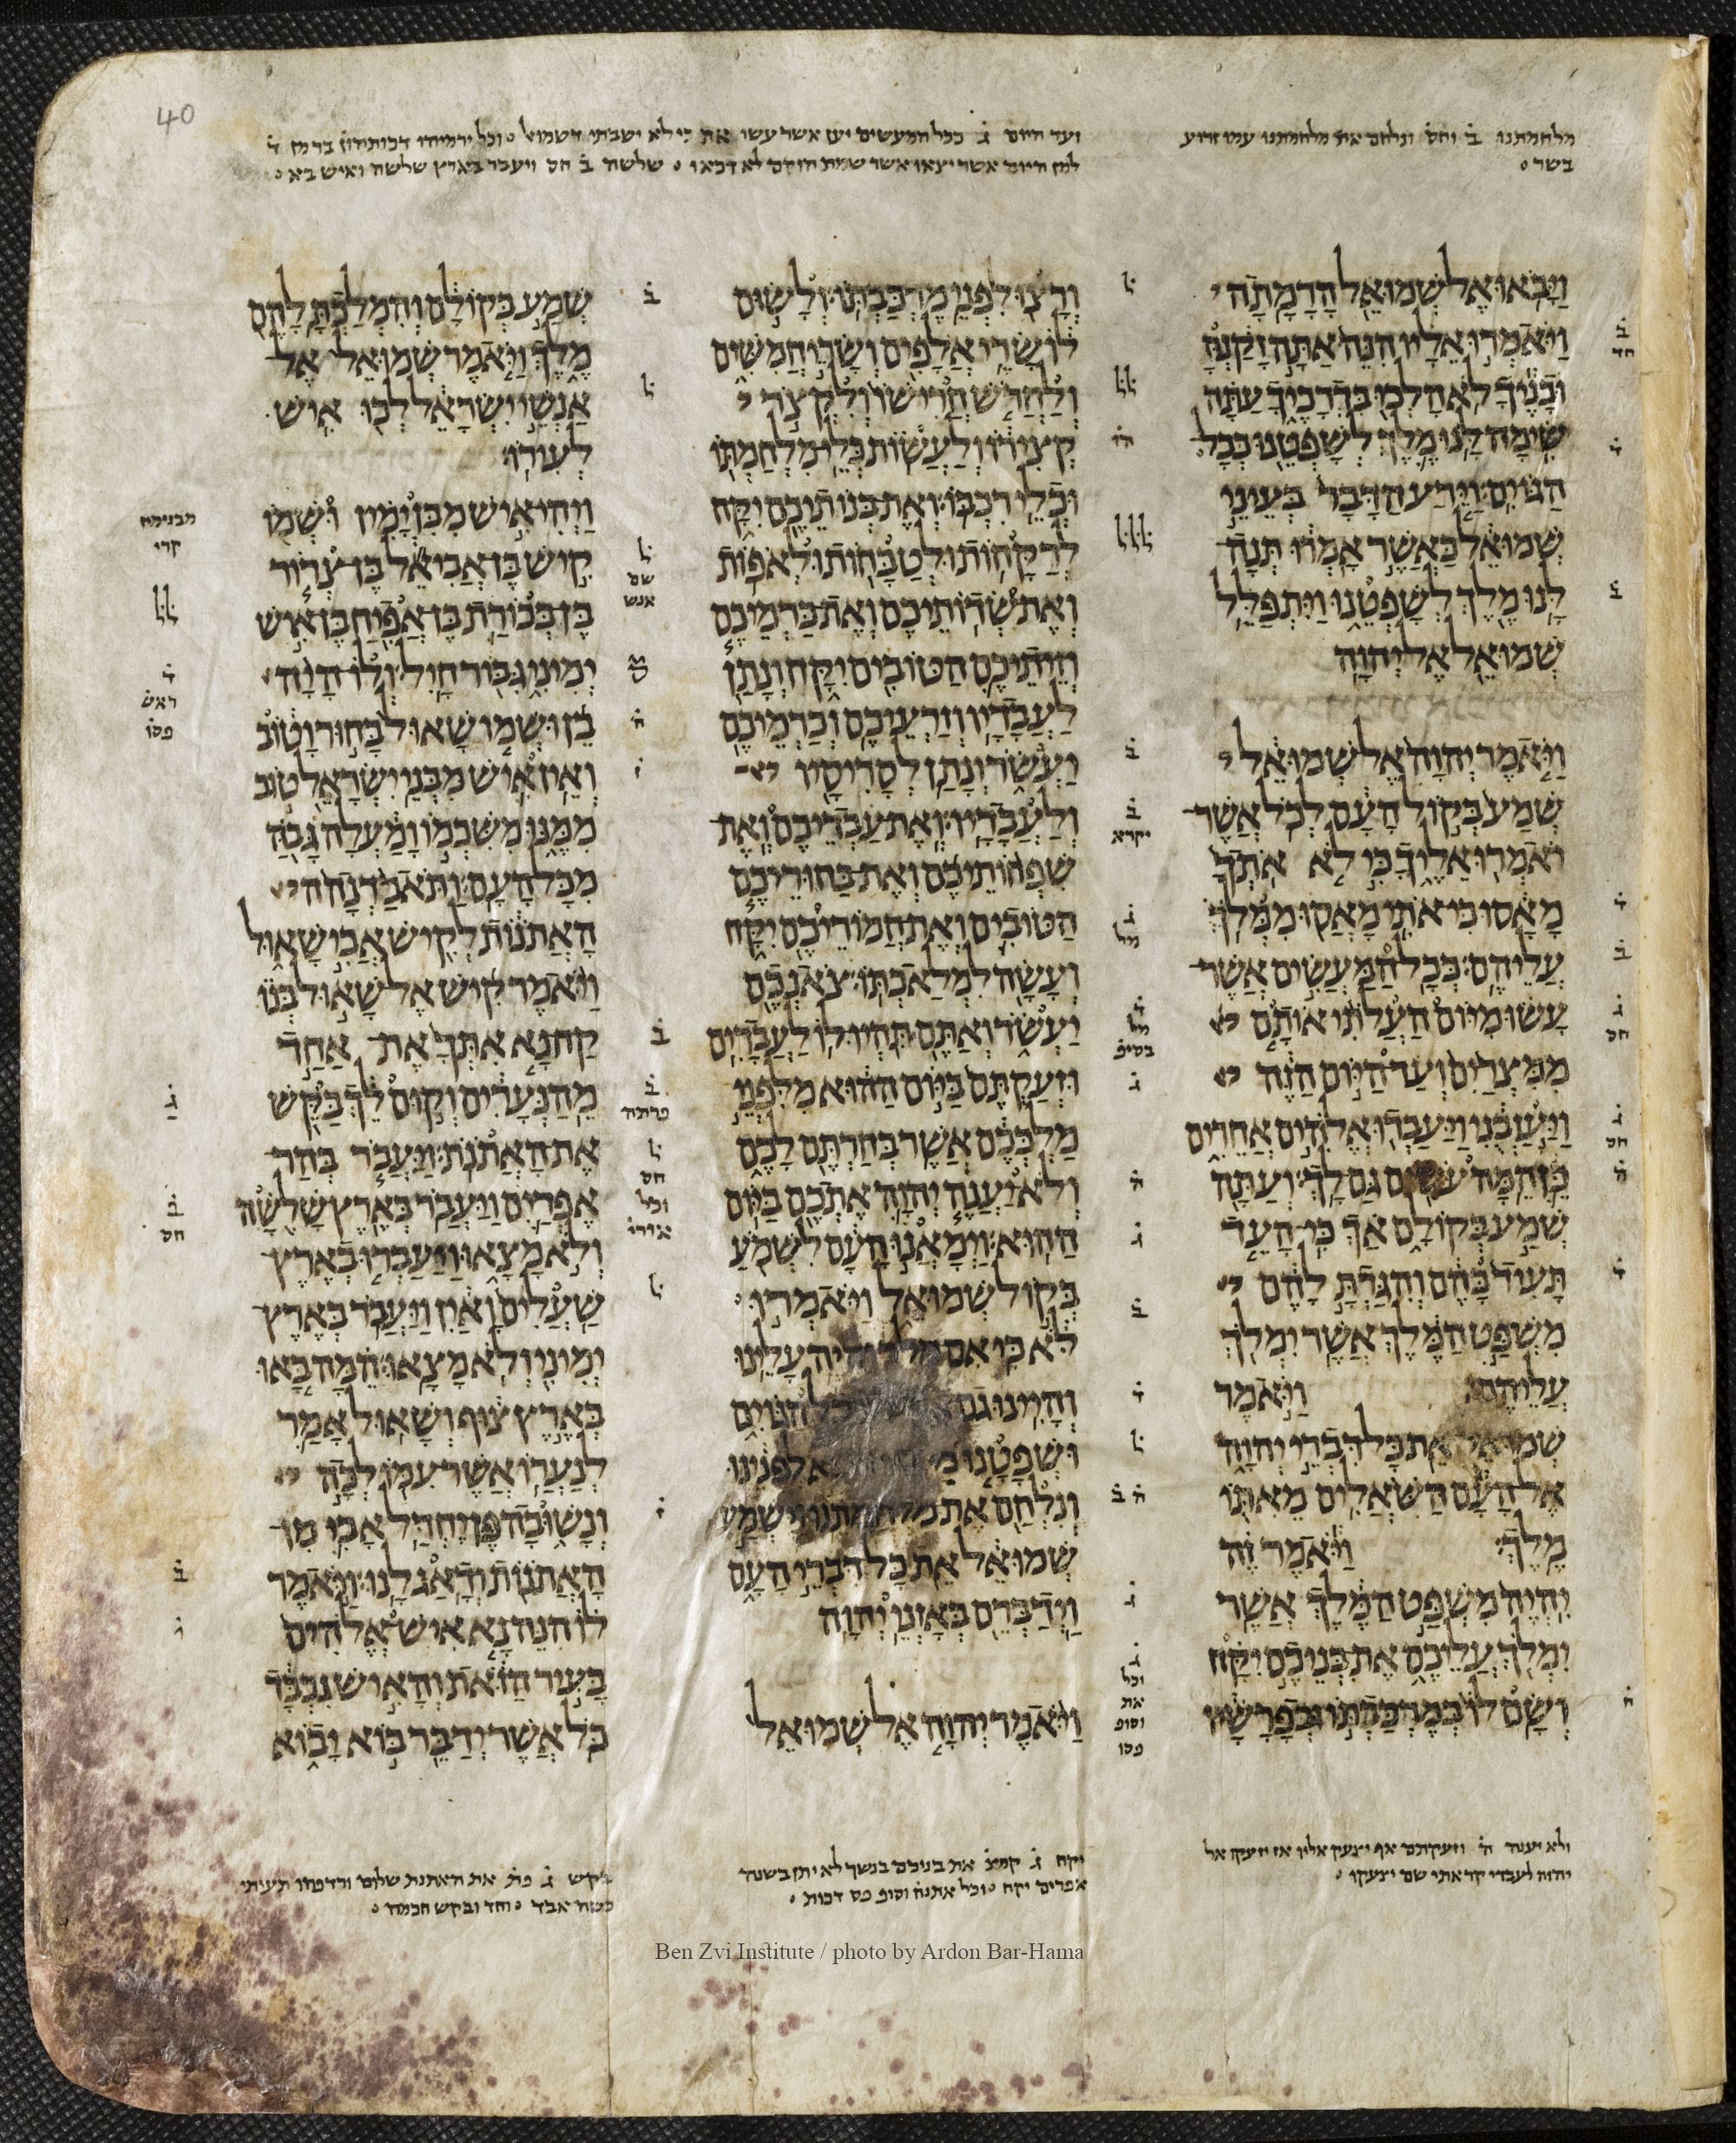 40
מלחמתנו ב וחס ונלחם את מלחמתנו עמו זרוע
בשר
ועד היום ג ככל המעשים יען אשר עשו את כי לא ישבתי דשמואל וכל ירמיהו דכותהון בר מן ד
למן היום אשר יצאו אשר שמת חוקם לא דכאו שלשה ב חס ויעבר בארץ שלשה ואיש בא
ויבאו אל שמואל הרמתה
ויאמרו אליו הנה אתה זקנת
ובניך לא הלכו בדרכיך עתה
שימה לנו מלך לשפטנו ככל
הגוים וירע הדבר בעיני
שמואל כאשר אמרו תנה
לנו מלך לשפטנו ויתפלל
שמואל אל יהוה
ויאמר יהוה אל שמואל
שמע בקול העם לכל אשר
יאמרו אליך כי לא אתך
מאסו כי אתי מאסו ממלך
עליהם ככל המעשים אשר
עשו מיום העלתי אותם
ממצרים ועד היום הזה
ויעזבני ויעבדו אלהים אחרים
כן המה עשים גם לך ועתה
שמע בקולם אך כי העד
תעיד בהם והגדת להם
משפט המלך אשר ימלך
עליהם ויאמר
שמואל את כל דברי יהוה
אל העם השאלים מאתו
מלך ויאמר זה
יהיה משפט המלך אשר
ימלך עליכם את בניכם יקח
ושם לו במרכבתו ובפרשיו
ורצו לפני מרכבתו ולשום
לו שרי אלפים ושרי חמשים
ולחרש חרישו ולקצר
קצירו ולעשות כלי מלחמתו
וכלי רכבו ואת בנותיכם יקח
לרקחות ולטבחות ולאפות
ואת שדותיכם ואת כרמיכם
וזיתיכם הטובים יקח ונתן
לעבדיו וזרעיכם וכרמיכם
יעשר ונתן לסריסיו
ולעבדיו ואת עבדיכם ואת
שפחותיכם ואת בחוריכם
הטובים ואת חמוריכם יקח
ועשה למלאכתו צאנכם
יעשר ואתם תהיו לו לעבדים
וזעקתם ביום ההוא מלפני
מלככם אשר בחרתם לכם
ולא יענה יהוה אתכם ביום
ההוא וימאנו העם לשמע
בקול שמואל ויאמרו
לא כי אם מלך יהיה עלינו
והיינו גם ככל הגוים
ושפטנו לפנינו
ונלחם את מלחמתנו וישמע
שמואל את כל דברי העם
וידברם באזני יהוה
ויאמר יהוה אל שמואל
שמע בקולם והמלכת להם
מלך ויאמר שמואל אל
אנשי ישראל לכו איש
לעירו
ויהי איש מבן ימין ושמו
קיש בן אביאל בן צרור
בן בכורת בן אפיח בן איש
ימיני גבור חיל ולו היה
בן ושמו שאול בחור וטוב
ואין איש מבני ישראל טוב
ממנו משכמו ומעלה גבה
מכל העם ותאבדנה
האתנות לקיש אבי שאול
ויאמר קיש אל שאול בנו
קח נא אתך את אחד
מהנערים וקום לך בקש
את האתנת ויעבר בהר
אפרים ויעבר בארץ שלשה
ולא מצאו ויעברו בארץ
שעלים ואין ויעבר בארץ
ימיני ולא מצאו המה באו
בארץ צוף ושאול אמר
לנערו אשר עמו לכה
ונשובה פן יחדל אבי מן
האתנות ודאג לנו ויאמר
לו הנה נא איש אלהים
בעיר הזאת והאיש נכבד
כל אשר ידבר בוא יבוא
מבנימין
קרי
ולא יענה ה וזעקתם אף יצעק אליו אז יזעקו אל
יהוה לעבדי קראתי שם יצעקו
יקח ג קמצ את בניכם בנשך לא יתן בשנה
אפרים יקח וכל אתנח וסופ פס דכות
בקש ג פת את האתנת שלום ורדפהו תעיתי
כשה אבד וחד ובקש חכמה
Ben Zvi Institute / photo by Ardon Bar-Hama